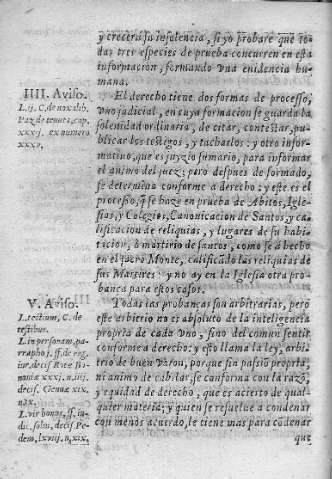 y crecerá su insolencia, si yo probare que to
das tres especies de prueba concurren en esta
informacion, formando vna euidencia hu-
mana.
IIII. Aviso.
El derecho tiene dos formas de processo,
vno judicial, en cuya formacion se guarda la
solenidad ordinaria, de citar, contestar, pu-
blicar los testigos, y tacharlos: y otro infor-
matiuo, que es juyzio sumario, para informar
el animo del juez; pero despues de formado,
se determina conforme a derecho: y este es el
processo, q̃ se haze en prueba de Abitos, Igle-
sias, y Colegios, Canonicacion de Santos, y ca-
lificacion de reliquias, y lugares de su habi-
tacion, ò martirio de santos, como se à hecho
en el sacro Monte, calificãdo las reliquias de
sus Martires: y no ay en la Iglesia otra pro-
banca para estos casos.
V. Aviso.
Todas las probanças son arbitrarias, pero
este arbitrio no es absoluto de la inteligencia
propria de cada vno, sino del comun sentir
conforme a derecho: y esto llama la ley, arbi-
trio de buen varon, porque sin passiõ propria,
ni animo de se conforma con la razõ,
y equidad de derecho, que es acierto de qual-
quier materia; y quien se resuelue a condenar
con menos acuerdo, le tiene mas para cõdenar
que
L. ij. C. de
cap.
xxxvij. ex numero
xxxv.
C. de
testibus.
L. in personam, pa-
rrapho j. ff. de reg.
iur. decis
xxxj. n. iiij.
decis. xix.
L. vir bonus, ff. iu-
di. solui, decis Pe-
dem, lxviij. n. xix.